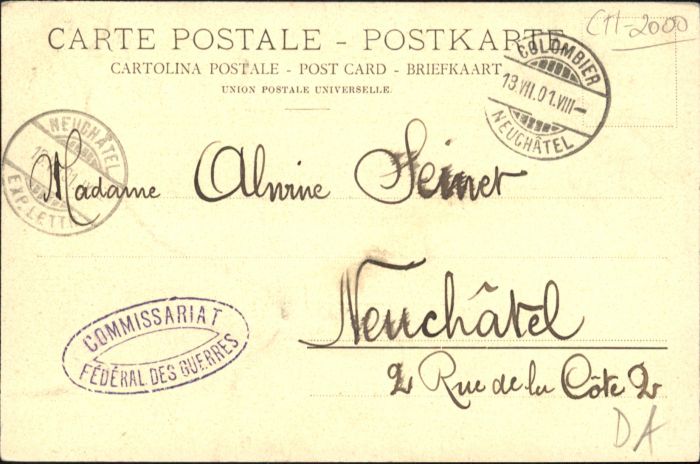 CARTE POSTALE - POSTKARTE
CARTOLINA POSTALE - POST CARD - BRIEFKAART
UNION POSTALE UNIVERSELLE.
CH-2000
COLOMBIER
13.VII.01.VIII-
NEUCHÂTEL
NEUCHÂTEL
EXP. LETTR.
Madame Alwine Seinet
Neuchâtel
2 Rue de la Côte 2
COMMISSARIAT
FÉDÉRAL DES GUERRES
DA